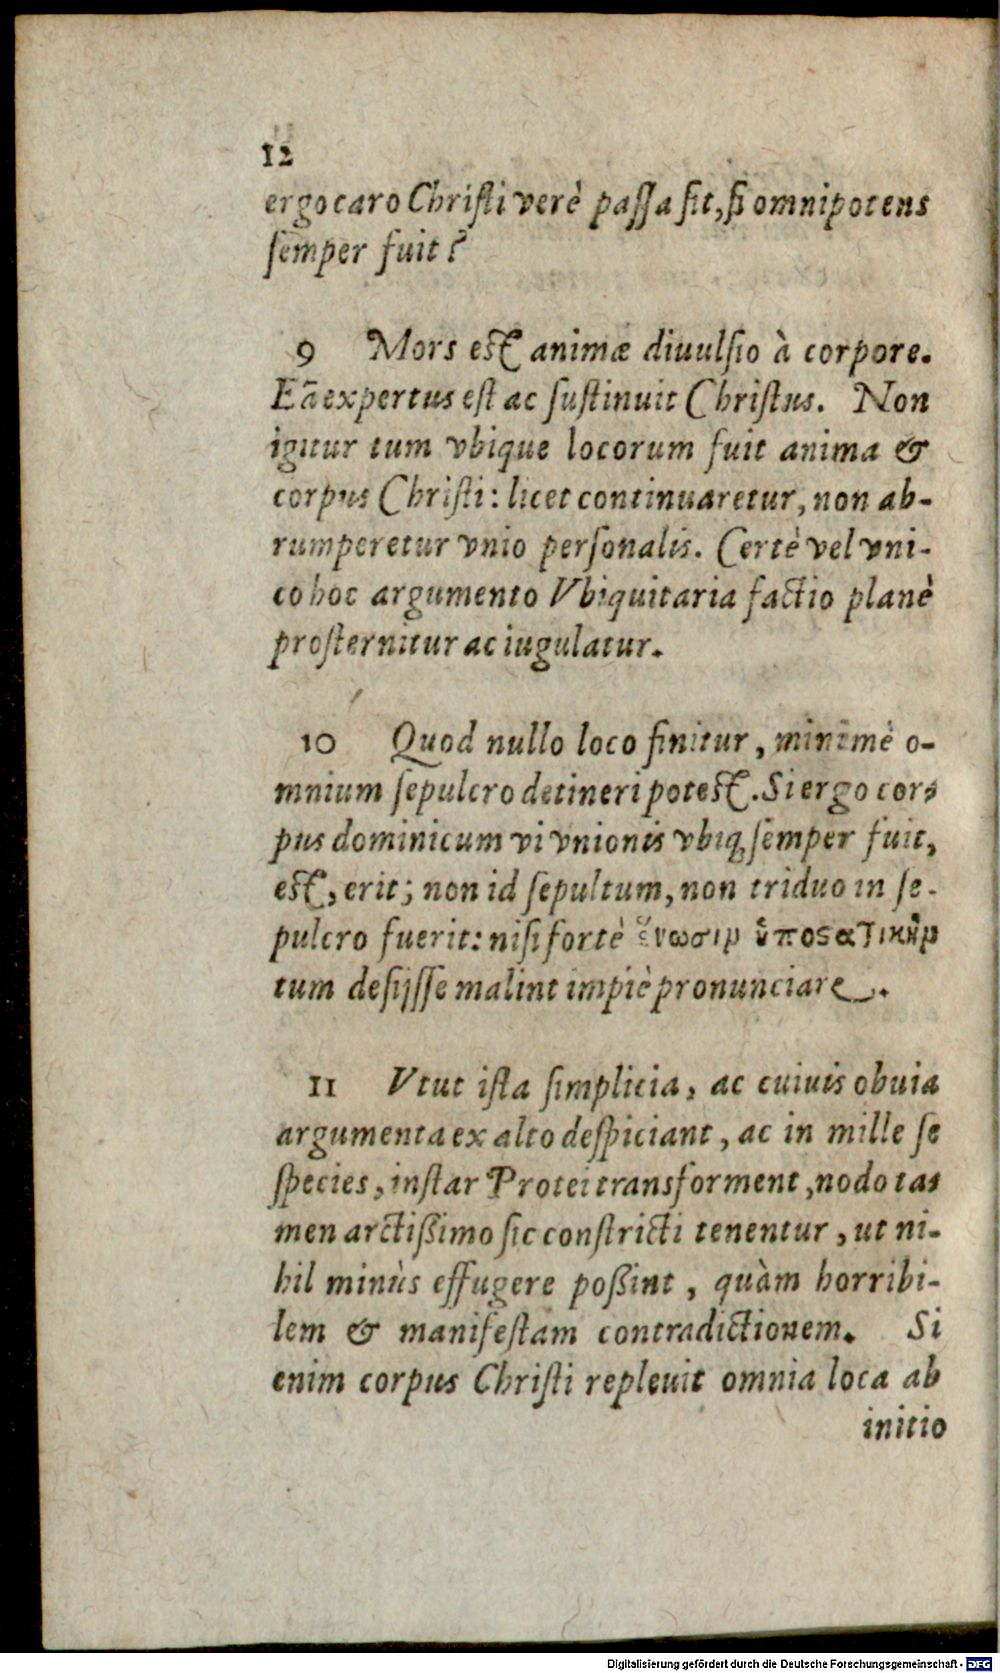 12
ergo caro Christi verè passa sit, si omnipotens
semper fuit?
9 Mors est animæ diuulsio à corpore.
Eã expertus est ac sustinuit Christus. Non
igitur tum vbique locorum fuit anima &
corpus Christi: licet continuaretur, non ab-
rumperetur vnio personalis. Certè vel vni-
co hoc argumento Vbiquitaria factio planè
prosternitur ac iugulatur.
10 Quod nullo loco finitur, minimè o-
mnium sepulcro detineri potest. Si ergo cor-
pus dominicum vi vnionis vbiq; semper fuit,
est, erit; non id sepultum, non triduo in se-
pulcro fuerit: nisi fortè ἕνωσιν ὑποϛατικὴν
tum desijsse malint impiè pronunciare.
11 Vtut ista simplicia, ac cuiuis obuia
argumenta ex alto despiciant, ac in mille se
species, instar Protei transforment, nodo ta-
men arctißimo sic constricti tenentur, ut ni-
hil minùs effugere poßint, quàm horribi-
lem & manifestam contradictionem. Si
enim corpus Christi repleuit omnia loca ab
initio
Digitalisierung gefördert durch die Deutsche Forschungsgemeinschaft - DFG